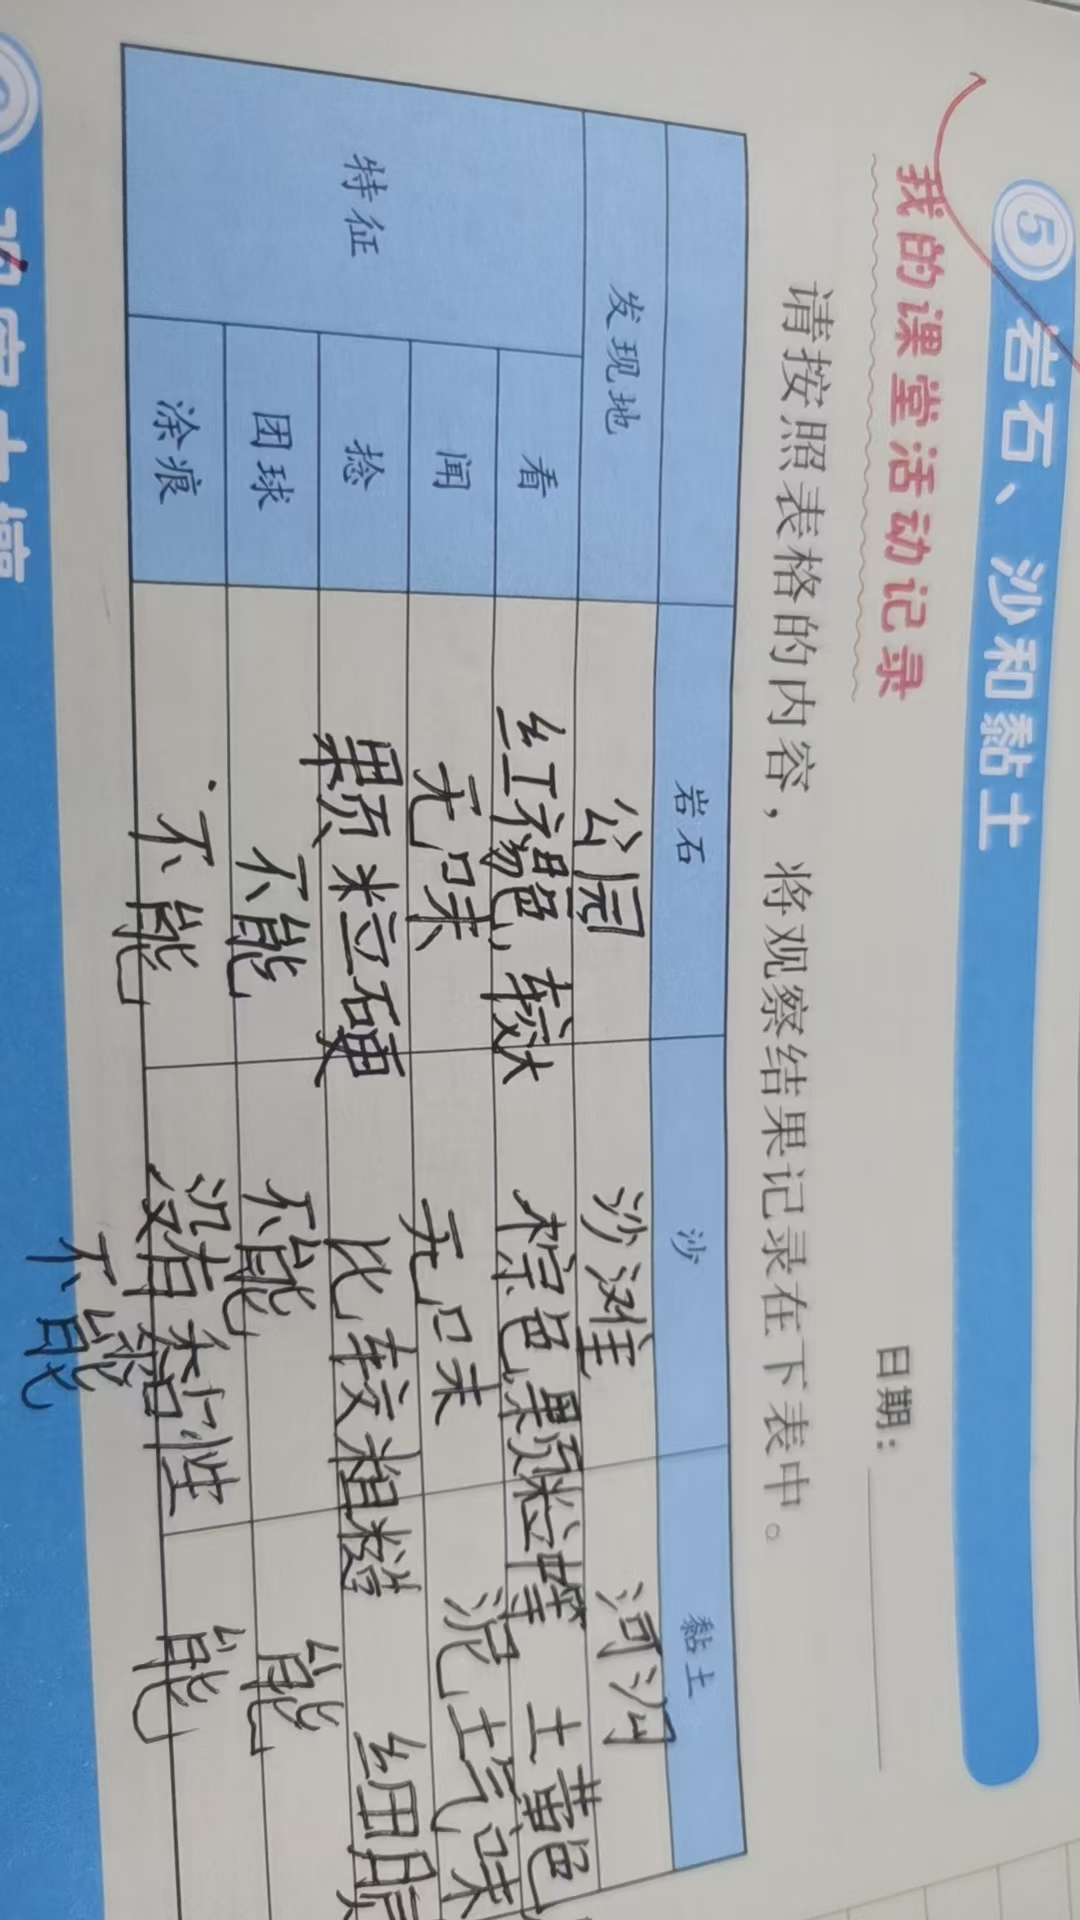 5 岩石、沙和黏土
我的课堂活动记录
日期:
请按照表格的内容，将观察结果记录在下表中。
岩石 沙 黏土
发现地 公园 沙滩 河沟
特征
看 红褐色,较大 棕色果颗粒 土黄色
闻 无味 无味 泥土气味
捻 颗粒硬 比较粗糙 细
团球 不能 不能 能
涂痕 不能 没有黏性 能
不能